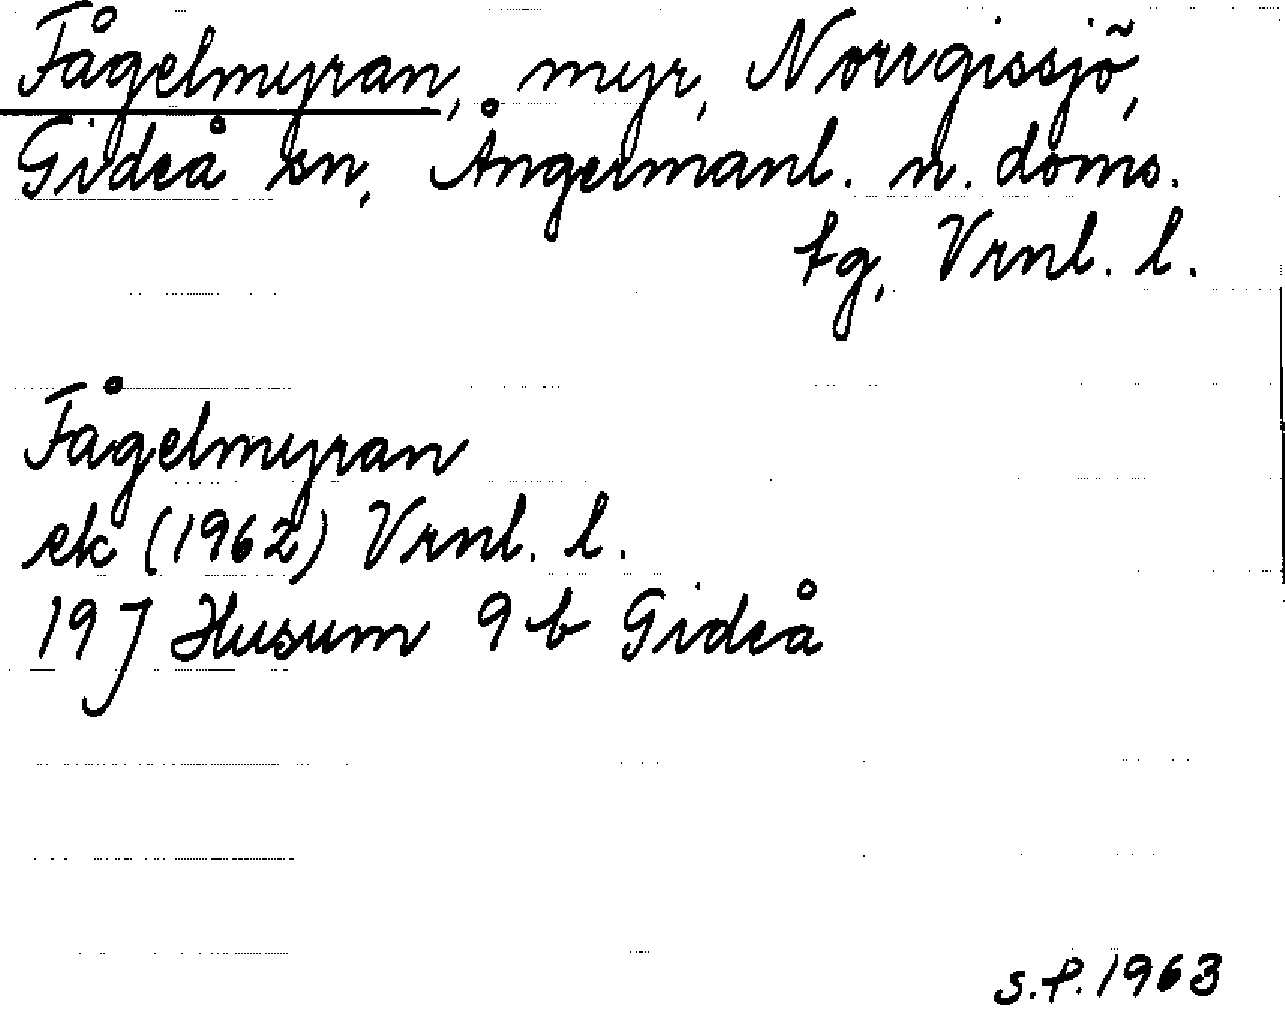 Fågelmyran, myr, Norrgissjö,
Gideå sn, Ångermanl. n. doms.
tg, Vrnl. l.
Fågelmyran
ek (1962) Vrnl. l.
19 J Husum 9 b Gideå
s.P. 1963